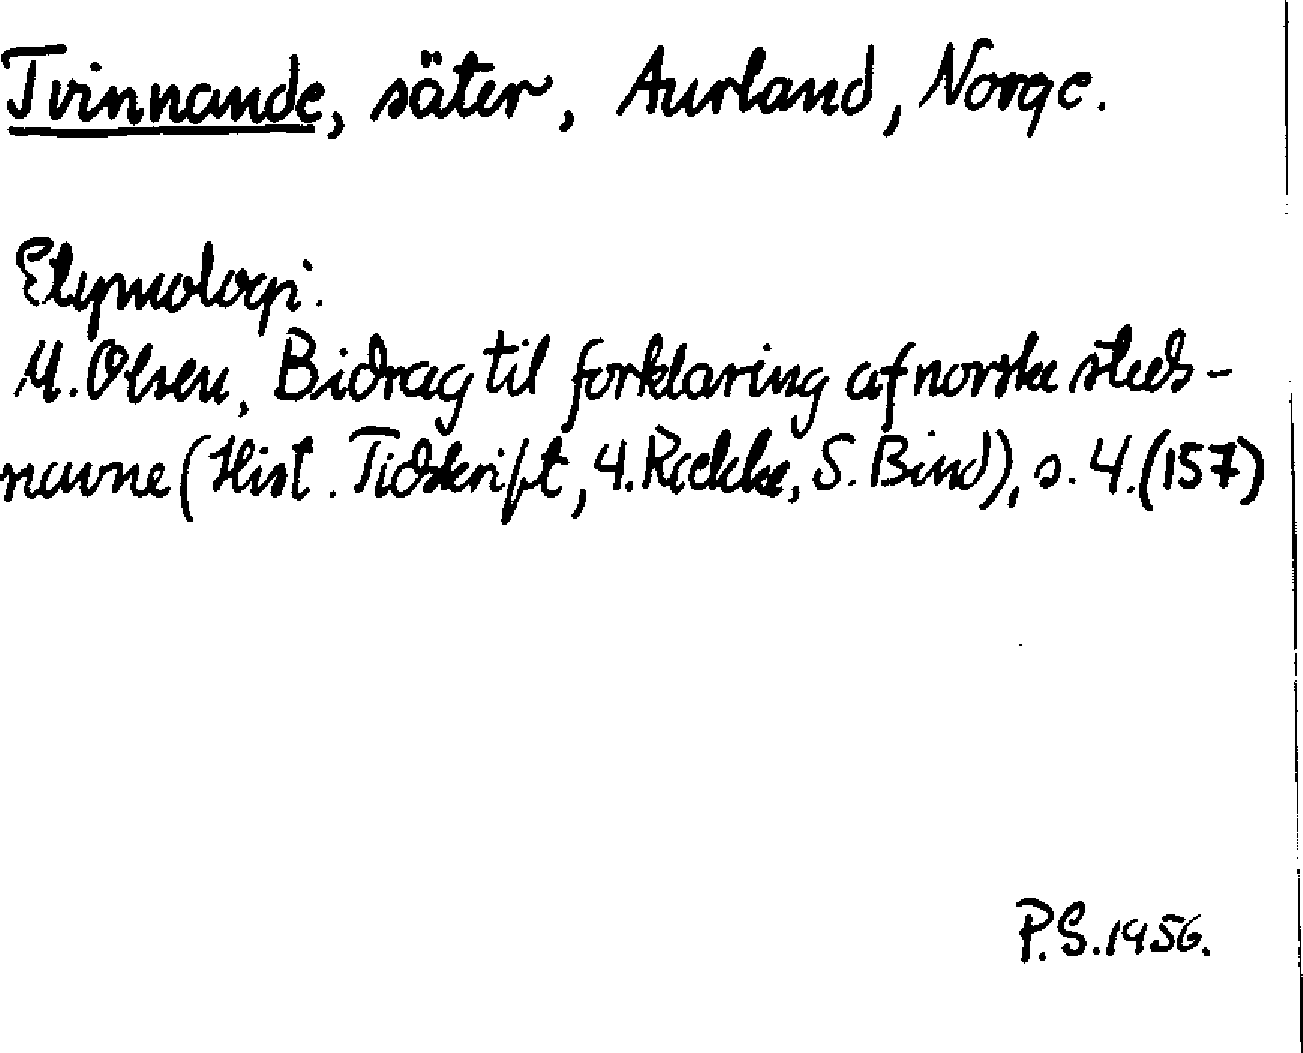 Tvinnande, säter, Aurland, Norge.
Etymologi.
M. Olsen, Bidrag til forklaring af norske steds-
navne (Hist. Tidskrift, 4. Række, 5. Bind), s. 4.(157)
P.S. 1956.